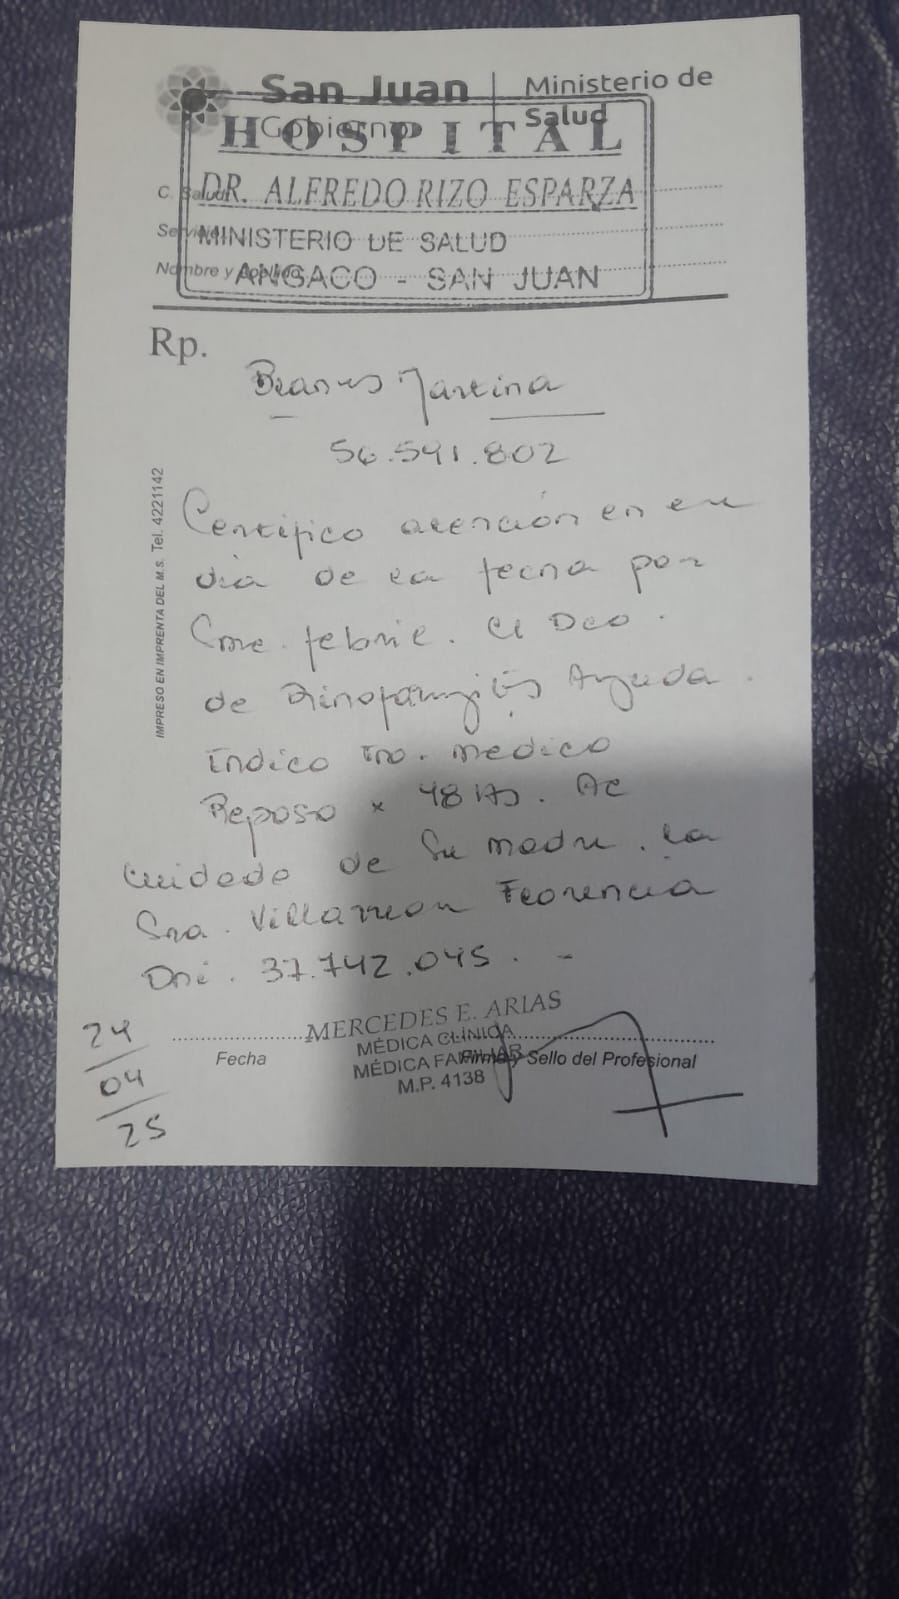 San Juan | Ministerio de
Gobierno Salud
HOSPITAL
DR. ALFREDO RIZO ESPARZA
MINISTERIO DE SALUD
ANGACO - SAN JUAN
C. Salud
Servicio
Nombre y Apellido
Rp.
Martina
56.591.802
Certifico atención en el
día de la fecha por
Sme. febril. Cl Dco.
de Rinofaringitis Aguda.
Indico tto. medico
Reposo x 48 Hs. Al
cuidado de Su madre. la
Sra. Villarreal Florencia
Dni. 37.742.045. -
24
04
25
MERCEDES E. ARIAS
MÉDICA CLÍNICA
MÉDICA FAMILIAR
M.P. 4138
Fecha
Firma y Sello del Profesional
IMPRESO EN IMPRENTA DEL M.S. Tel. 4221142